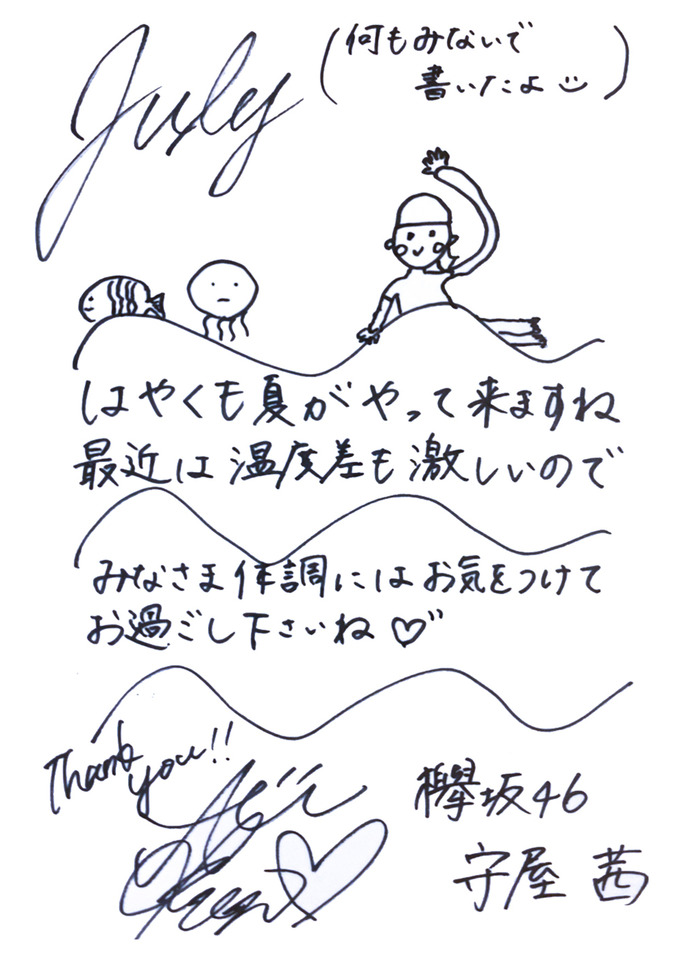 July
(何もみないで
書いたよ)
はやくも夏がやって来ますね
最近は温度差も激しいので
みなさま体調にはお気をつけて
お過ごし下さいね♡
Thank
you!!
欅坂46
守屋 茜